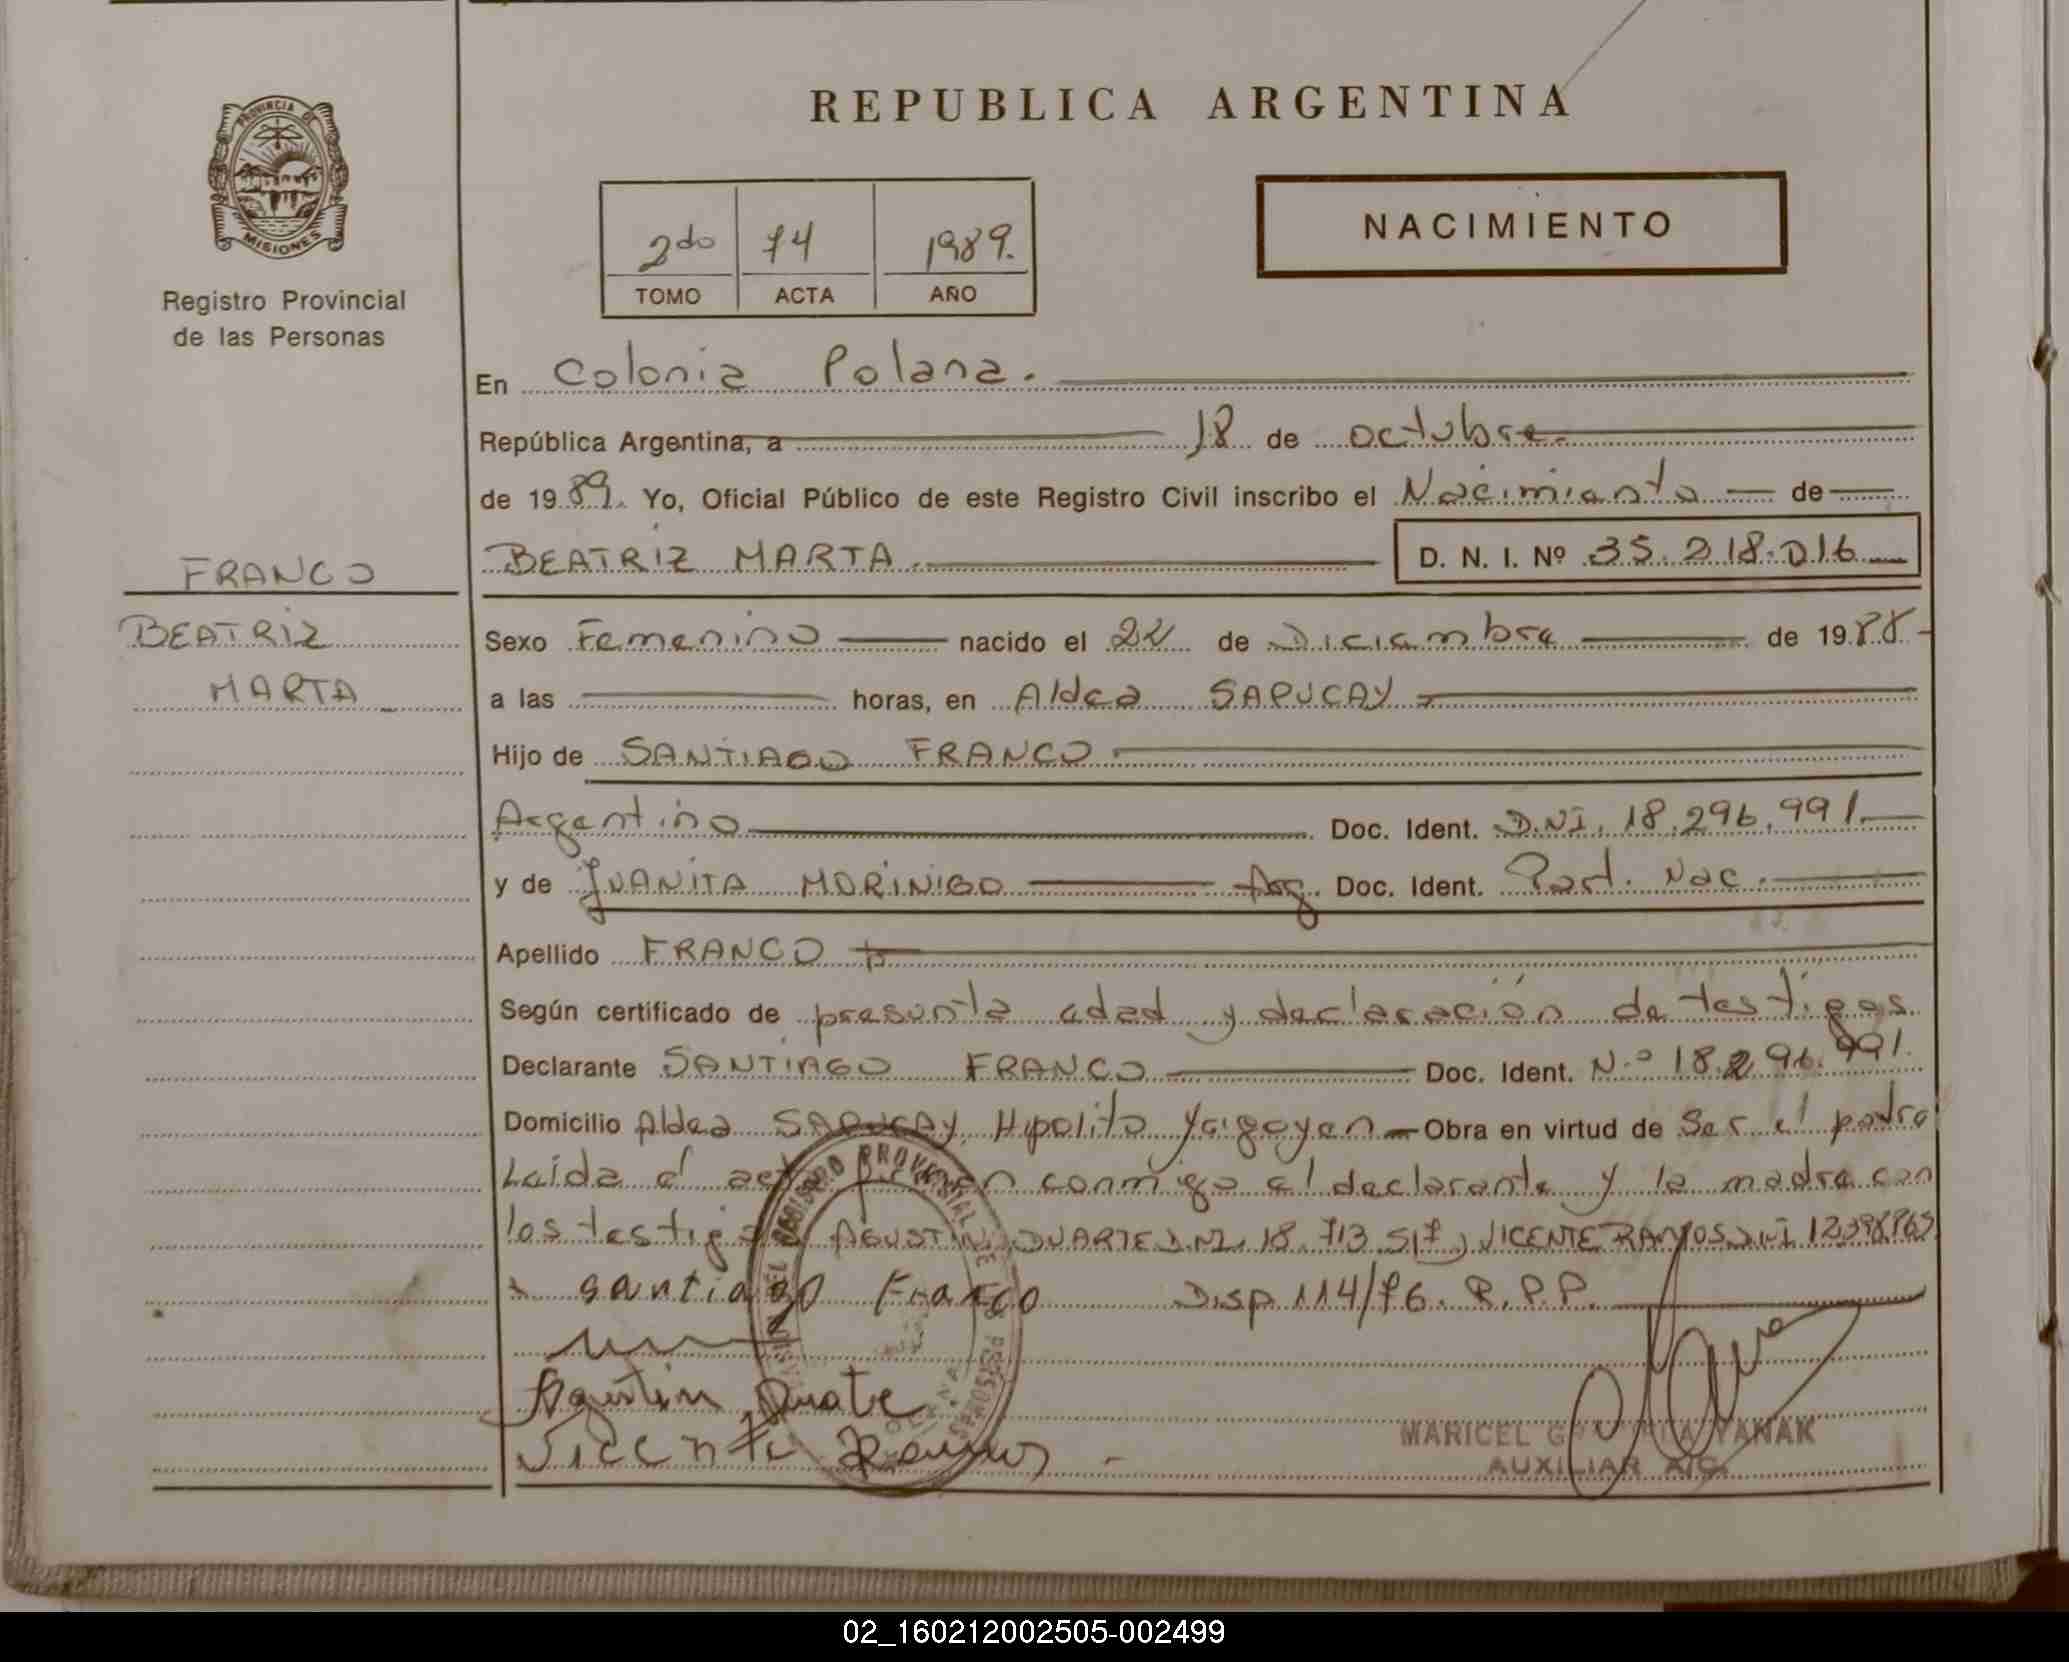 REPUBLICA ARGENTINA
PROVINCIA DE
MISIONES
Registro Provincial
de las Personas
2do 74 1989.
TOMO ACTA AÑO
NACIMIENTO
En Colonia Polana.
República Argentina, a 18 de octubre.
de 1989. Yo, Oficial Público de este Registro Civil inscribo el Nacimiento de
BEATRIZ MARTA. D. N. I. Nº 35.218.016
FRANCO
BEATRIZ
MARTA
Sexo Femenino nacido el 22 de Diciembre de 1988
a las horas, en Aldea SAPUCAY
Hijo de SANTIAGO FRANCO.
Argentino Doc. Ident. D.NI. 18.296.991.
y de JUANITA MORINIGO Arg. Doc. Ident. Part. Nac.
Apellido FRANCO
Según certificado de presunta edad y declaración de testigos.
Declarante SANTIAGO FRANCO Doc. Ident. N.º 18.296.991.
Domicilio Aldea SAPUCAY Hipolito Yrigoyen Obra en virtud de Ser el padre
Leida el conmigo el declarante y la madre con
los AGUSTIN DUARTE D.NI. 18.713.517, VICENTE RAMOS DNI
santiago Franco Disp 114/76. R.P.P.
Agustin Duate
Vicente Ramos
REGISTRO PROVINCIAL DE LAS PERSONAS
MARICEL YANAK
AUXILIAR
02_160212002505-002499